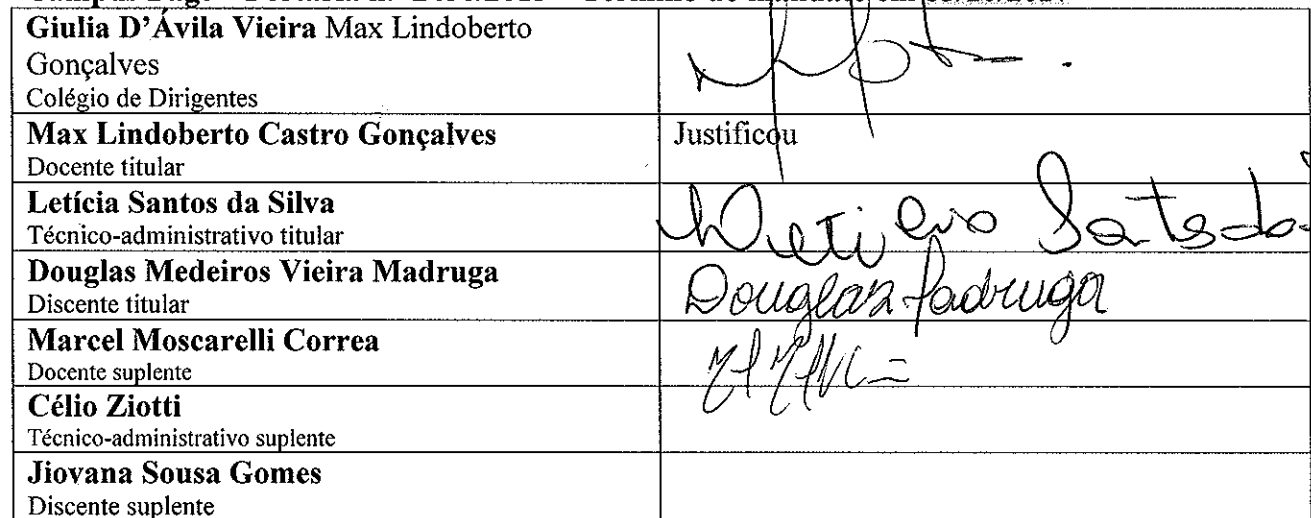 Giulia D’Ávila Vieira Max Lindoberto
Gonçalves
Colégio de Dirigentes
Max Lindoberto Castro Gonçalves Justificou
Docente titular
Letícia Santos da Silva
Técnico-administrativo titular
Douglas Medeiros Vieira Madruga Douglas Madruga
Discente titular
Marcel Moscarelli Correa
Docente suplente
Célio Ziotti
Técnico-administrativo suplente
Jiovana Sousa Gomes
Discente suplente